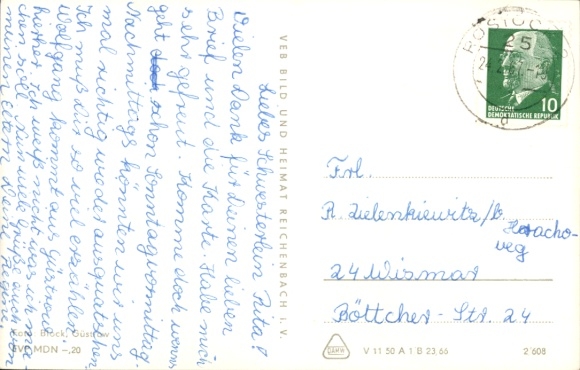 Liebes Schwesterlein Rita!
Vielen Dank für Deinen lieben
Brief und die Karte. Habe mich
sehr gefreut. Komme doch wenn
geht schon Sonntagvormittag.
Nachmittags könnten wir uns
mal richtig wieder ausquatschen.
Ich muß dir so viel erzählen.
Wolfgang kommt aus Güstrow
hierher. Ich weiß nicht was ich ma-
chen soll. Nun viele Grüße auch von
meinen Eltern Deine
VEB BILD UND HEIMAT REICHENBACH i. V.
Block, Güstrow
EVP MDN –,20
ROSTOCK
25
DEUTSCHE
DEMOKRATISCHE REPUBLIK
10
Frl.
R. Zielenkiewitz
24 Wismar
Böttcher-Str. 24
V 11 50 A 1 B 23 66
2/608